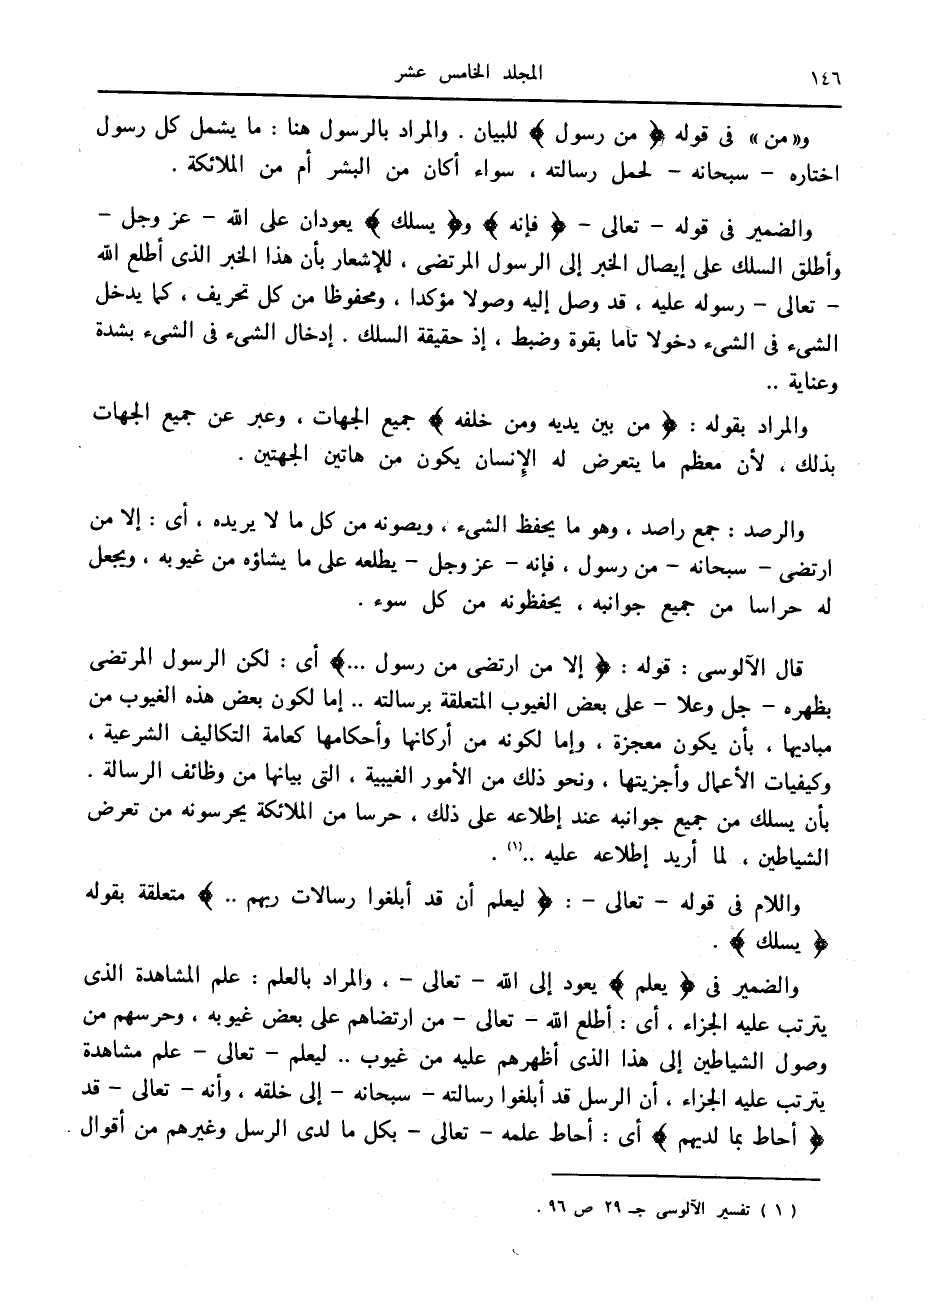 ١٤٦ المجلد الخامس عشر
و« من » فى قوله ﴿ من رسول ﴾ للبيان . والمراد بالرسول هنا : ما يشمل كل رسول
اختاره – سبحانه – لحمل رسالته ، سواء أكان من البشر أم من الملائكة .
والضمير فى قوله – تعالى – ﴿ فإنه ﴾ و﴿ يسلك ﴾ يعودان على الله – عز وجل –
وأطلق السلك على إيصال الخبر إلى الرسول المرتضى ، للإشعار بأن هذا الخبر الذى أطلع الله
– تعالى – رسوله عليه ، قد وصل إليه وصولا مؤكدا ، ومحفوظا من كل تحريف ، كما يدخل
الشىء فى الشىء دخولا تاما بقوة وضبط ، إذ حقيقة السلك . إدخال الشىء فى الشىء بشدة
وعناية ..
والمراد بقوله : ﴿ من بين يديه ومن خلفه ﴾ جميع الجهات ، وعبر عن جميع الجهات
بذلك ، لأن معظم ما يتعرض له الإنسان يكون من هاتين الجهتين .
والرصد : جمع راصد ، وهو ما يحفظ الشىء ، ويصونه من كل ما لا يريده ، أى : إلا من
ارتضى – سبحانه – من رسول ، فإنه – عز وجل – يطلعه على ما يشاؤه من غيوبه ، ويجعل
له حراسا من جميع جوانبه ، يحفظونه من كل سوء .
قال الآلوسى : قوله : ﴿ إلا من ارتضى من رسول ...﴾ أى : لكن الرسول المرتضى
يظهره – جل وعلا – على بعض الغيوب المتعلقة برسالته .. إما لكون بعض هذه الغيوب من
مباديها ، بأن يكون معجزة ، وإما لكونه من أركانها وأحكامها كعامة التكاليف الشرعية ،
وكيفيات الأعمال وأجزيتها ، ونحو ذلك من الأمور الغيبية ، التى بيانها من وظائف الرسالة .
بأن يسلك من جميع جوانبه عند إطلاعه على ذلك ، حرسا من الملائكة يحرسونه من تعرض
الشياطين ، لما أريد إطلاعه عليه ..(١) .
واللام فى قوله – تعالى – : ﴿ ليعلم أن قد أبلغوا رسالات ربهم .. ﴾ متعلقة بقوله
﴿ يسلك ﴾ .
والضمير فى ﴿ يعلم ﴾ يعود إلى الله – تعالى – ، والمراد بالعلم : علم المشاهدة الذى
يترتب عليه الجزاء ، أى : أطلع الله – تعالى – من ارتضاهم على بعض غيوبه ، وحرسهم من
وصول الشياطين إلى هذا الذى أظهرهم عليه من غيوب .. ليعلم – تعالى – علم مشاهدة
يترتب عليه الجزاء ، أن الرسل قد أبلغوا رسالته – سبحانه – إلى خلقه ، وأنه – تعالى – قد
﴿ أحاط بما لديهم ﴾ أى : أحاط علمه – تعالى – بكل ما لدى الرسل وغيرهم من أقوال .
( ١ ) تفسير الآلوسى جـ ٢٩ ص ٩٦ .